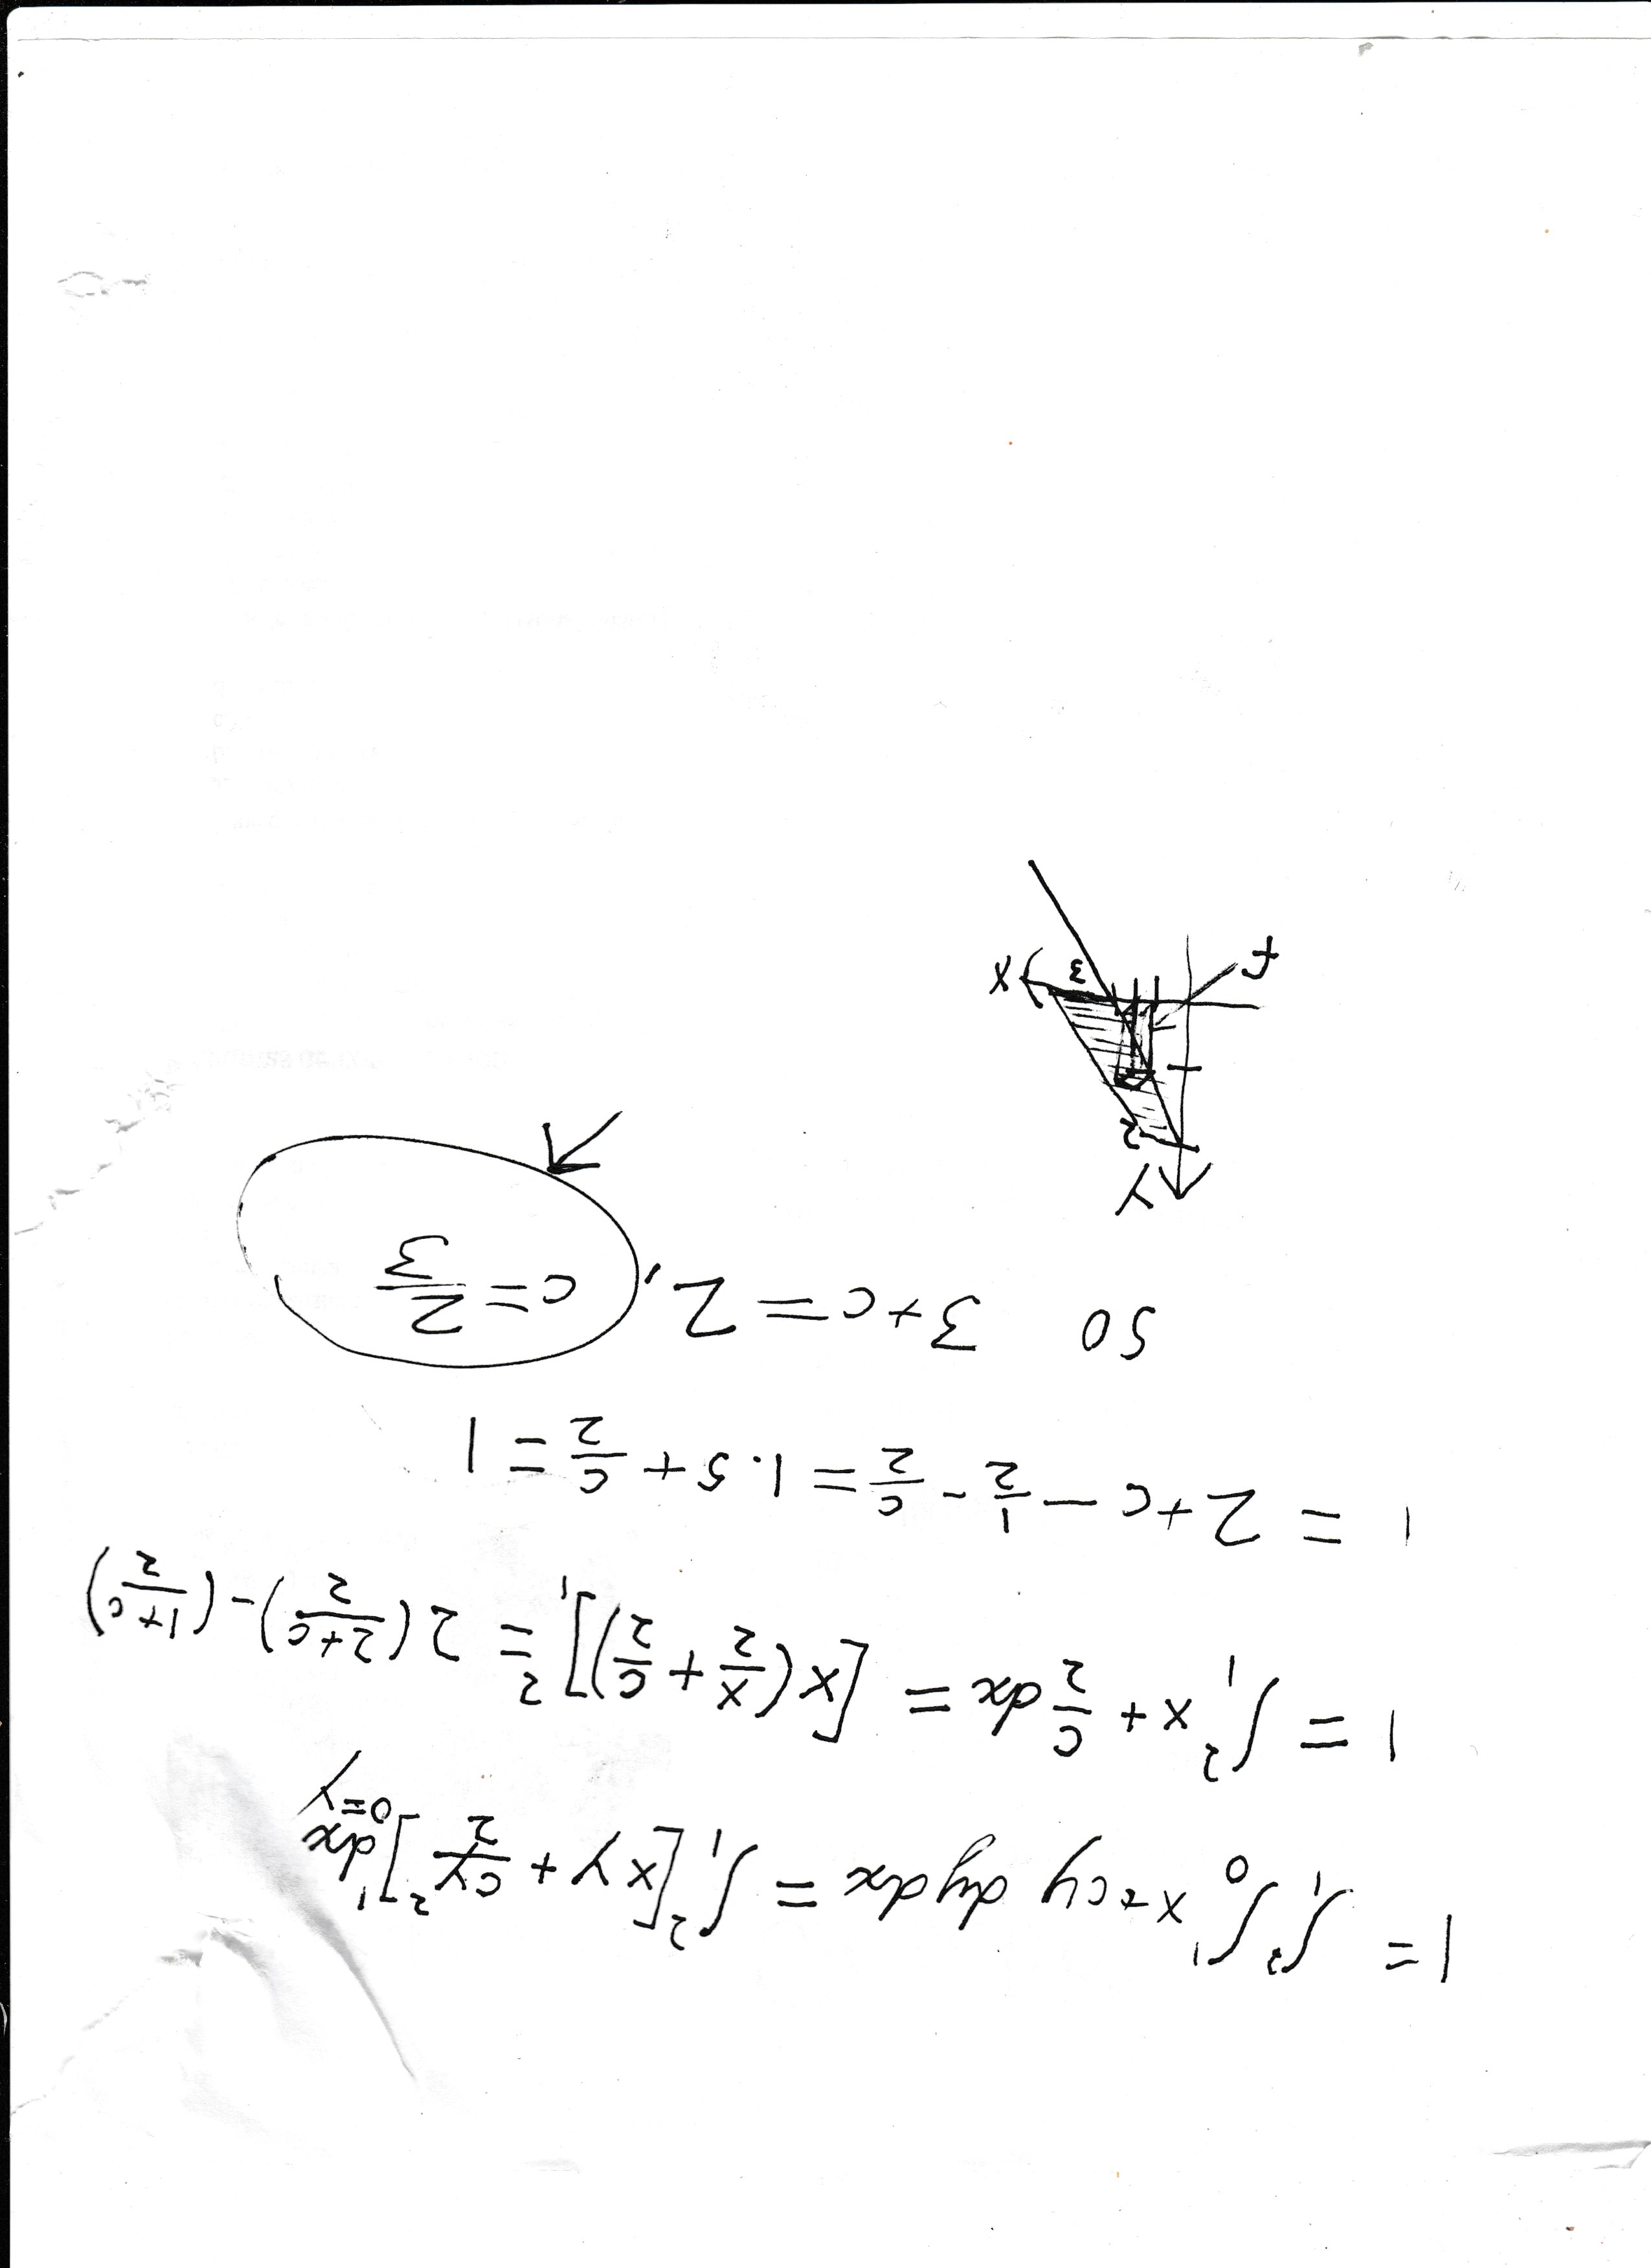 1 = ∫₁² ∫₀¹ x + cy dy dx = ∫₁² [xy + cy²/2]¹₀₌y dx
1 = ∫₁² x + c/2 dx = [x(x/2 + c/2)]₁² = 2((2+c)/2) - ((1+c)/2)
1 = 2 + c - 1/2 - c/2 = 1.5 + c/2 = 1
so 3 + c = 2, c = 2/3
Y
2
f
3
X